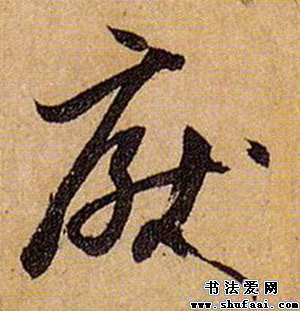 厭
书法爱网
www.shufaai.com